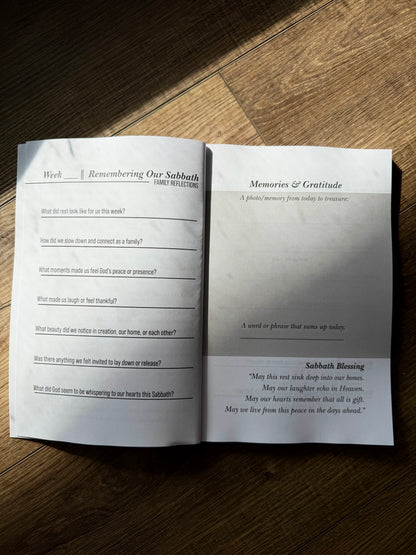 Week ___ || Remembering Our Sabbath
FAMILY REFLECTIONS
What did rest look like for us this week?
How did we slow down and connect as a family?
What moments made us feel God's peace or presence?
What made us laugh or feel thankful?
What beauty did we notice in creation, our home, or each other?
Was there anything we felt invited to lay down or release?
What did God seem to be whispering to our hearts this Sabbath?
Memories & Gratitude
A photo/memory from today to treasure:
A word or phrase that sums up today.
Sabbath Blessing
"May this rest sink deep into our bones.
May our laughter echo in Heaven.
May our hearts remember that all is gift.
May we live from this peace in the days ahead."